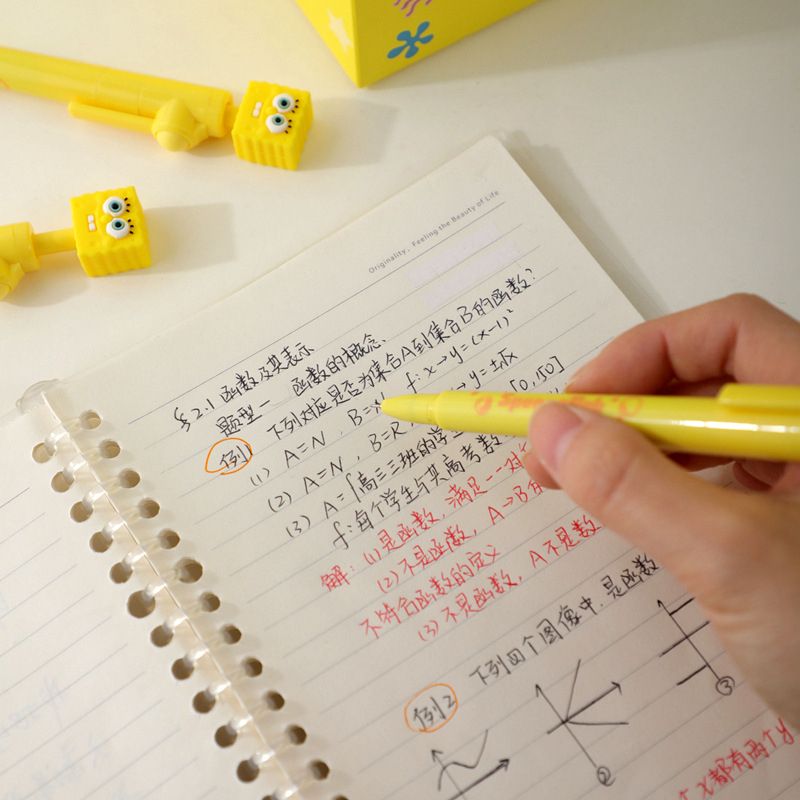 Originality, Feeling the Beauty of Life
§2.1 函数及其表示
题型一 函数的概念
例1 下列对应是否为集合A到集合B的函数?
(1) A=N, B=N f:x→y=(x-1)²
(2) A=N, B=R →y=±√x
(3) A={高三三班的学生 [0,150]
f:每个学生与其高考数
解:(1)是函数,满足一一对
(2)不是函数, A→B的
不符合函数的定义
(3)不是函数, A不是数
例2 下列四个图像中,是函数
②
③
个x都有两个y